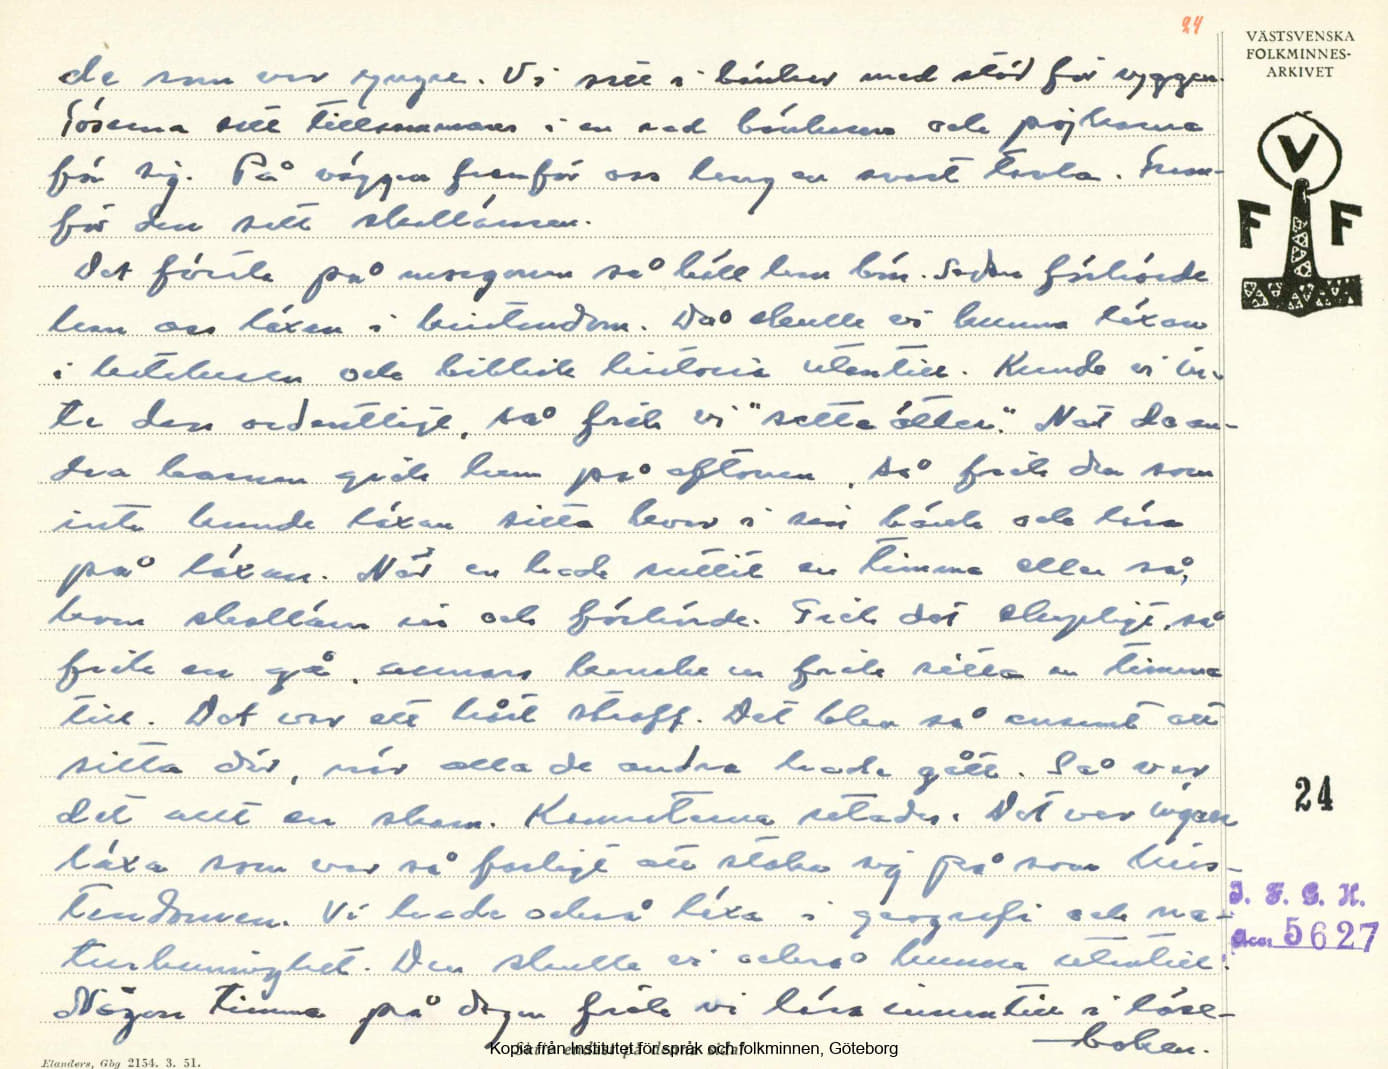 24
VÄSTSVENSKA
FOLKMINNES-
ARKIVET
V
F F
de som var yngre. Vi satt i bänkar med stöd för ryggen.
Töserna satt tillsammans i en rad bänkar och pojkarna
för sig. På väggen framför oss hang en svart tavla. Fram-
för den satt skolläraren.
Det första på morgonen så höll han bön. Sedan förhörde
han oss läxan i kristendom. Då skulle vi kunna läxan
i katekesen och biblisk historia utantill. Kunde vi in-
te den ordentligt, så fick vi "setta ätter". När de an-
dra barnen gick hem på aftonen, så fick den som
inte kunde läxan sitta kvar i sin bänk och läsa
på läxan. När en hade suttit en timma eller så,
kom skollärn in och förhörde. Gick det skapligt, så
fick en gå, annars kanske en fick sitta en timma
till. Det var ett hårt straff. Det blev så ensamt att
sitta där, när alla de andra hade gått. Så var
det allt en skam. Kamraterna retades. Det var ingen
läxa som var så farligt att staka sig på som kris-
tendomen. Vi hade också läxa i geografi och na-
turkunnighet. Den skulle vi också kunna utantill.
Någon timma på dagen fick vi läsa innantill i läse-
boken.
24
I. F. G. H.
Acc. 5627
Kopia från Institutet för språk och folkminnen, Göteborg
Elanders, Gbg 2154. 3. 51.